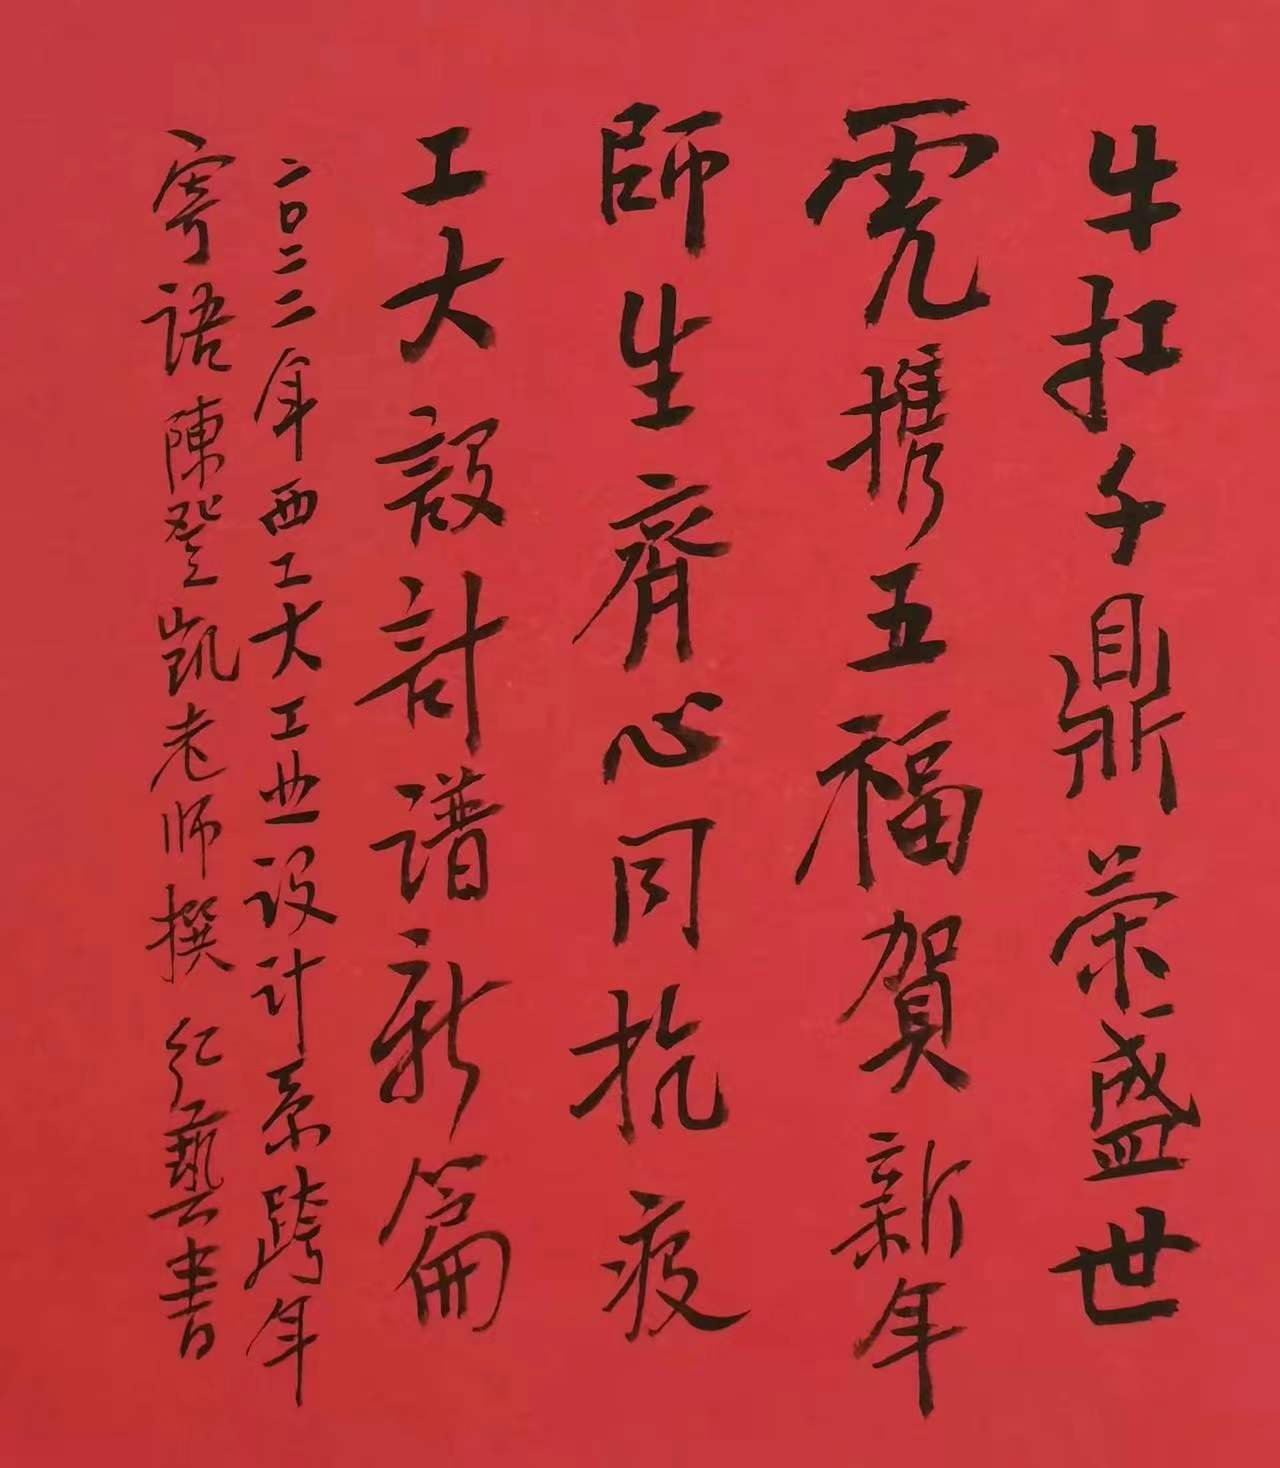 牛扛千鼎荣盛世
虎携五福賀新年
師生齊心同抗疫
工大設計譜新篇
二〇二二年西工大工业设计系跨年
寄语陳登凯老师撰 红藝書